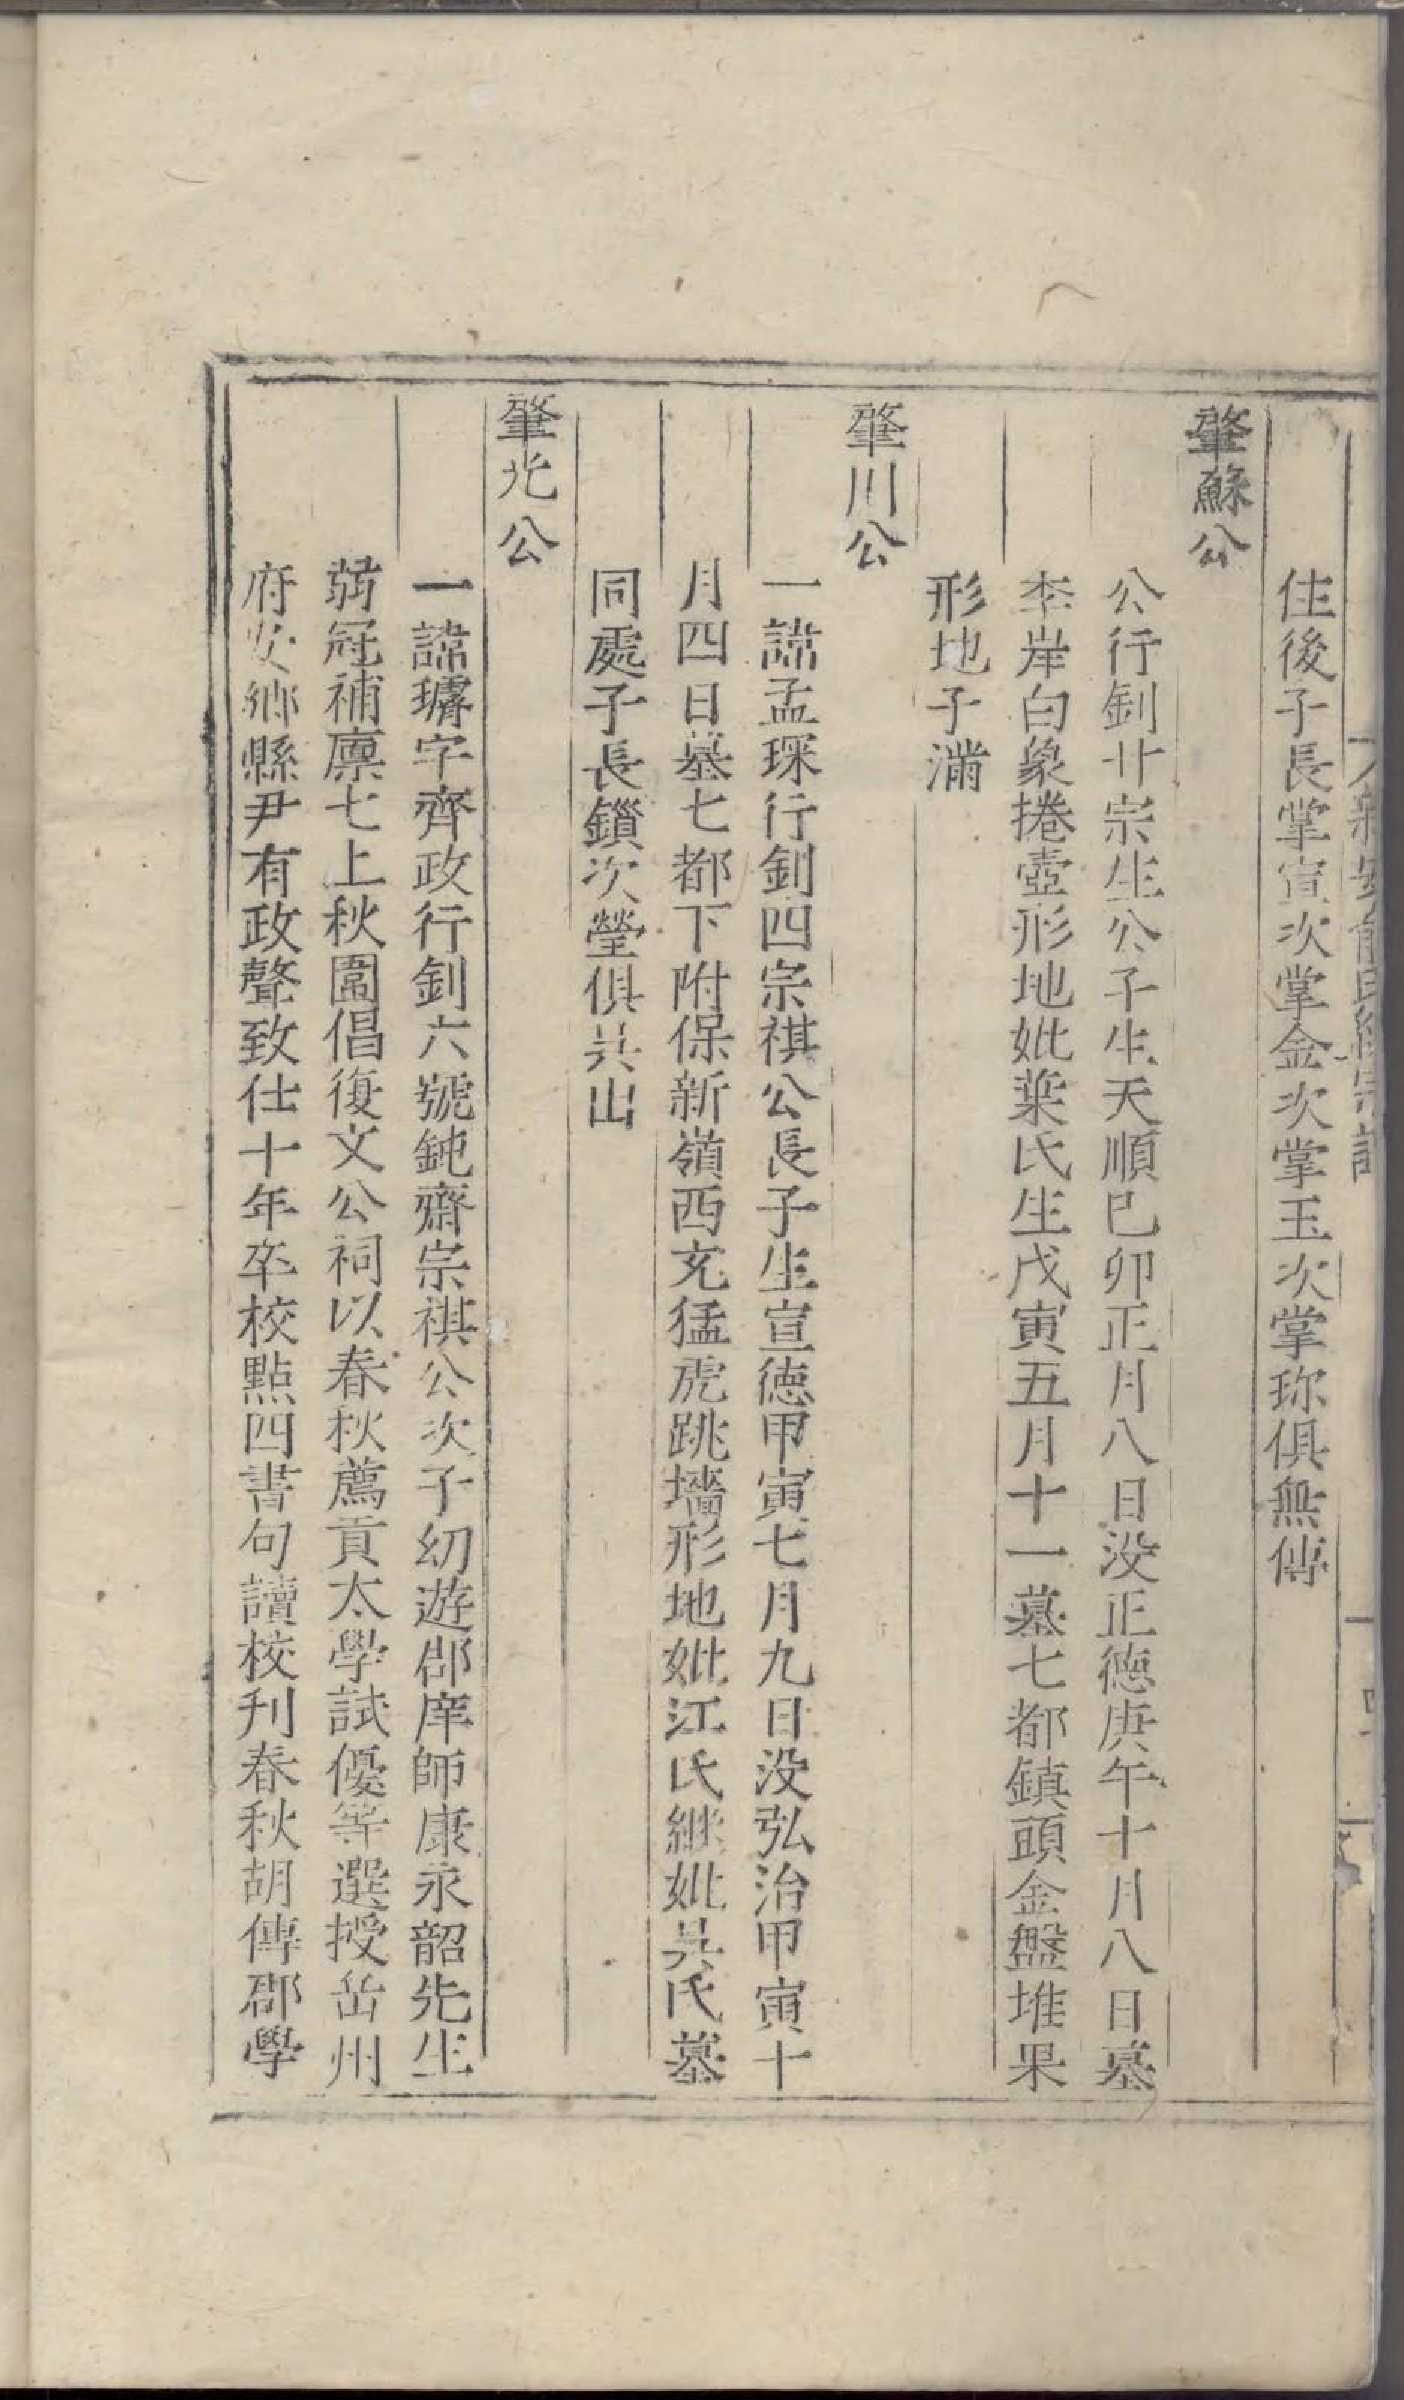 住後子長掌宣次掌金次掌玉次掌珎俱無傳
肇蘇公
公行釗廿宗生公子生天順巳卯正月八日没正德庚午十月八日墓
李岸白象捲壺形地妣葉氏生戊寅五月十一墓七都鎮頭金盤堆果
形地子滿
肇川公
一諱孟琛行釗四宗祺公長子生宣德甲寅七月九日没弘治甲寅十
月四日墓七都下附保新嶺西充猛虎跳墻形地妣江氏継妣吳氏墓
同處子長鎻次瑩俱吳山
肇光公
一諱璿字齊政行釗六號鈍齋宗祺公次子幼遊郡庠師康永韶先生
弱冠補廪七上秋圍倡復文公祠以春秋薦貢太學試優等選授岳州
府安鄉縣尹有政聲致仕十年卒校點四書句讀校刋春秋胡傳郡學